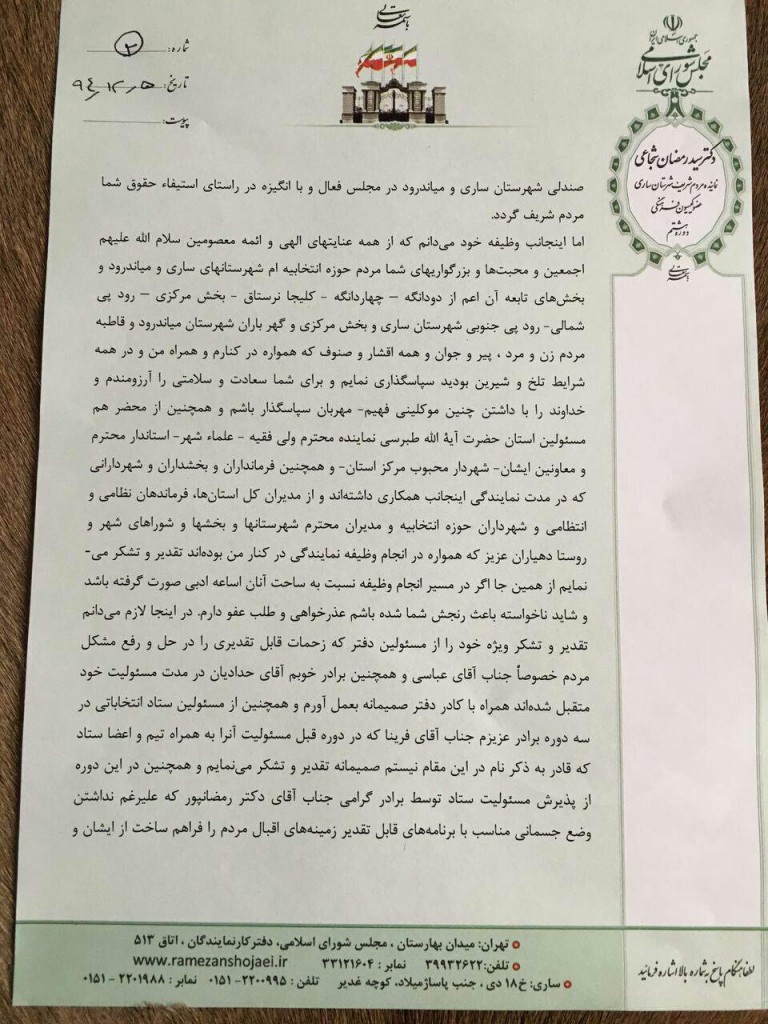 باسمه تعالی
جمهوری اسلامی ایران
مجلس شورای اسلامی
دکتر سید رمضان شجاعی
نماینده مردم شریف شهرستان ساری
عضو کمیسیون فرهنگی
دوره هشتم
باسمه تعالی
شماره: ۲
تاریخ: ۹۴,۱۲,۵
پیوست:
صندلی شهرستان ساری و میاندرود در مجلس فعال و با انگیزه در راستای استیفاء حقوق شما
مردم شریف گردد.
اما اینجانب وظیفه خود می‌دانم که از همه عنایتهای الهی و ائمه معصومین سلام الله علیهم
اجمعین و محبت‌ها و بزرگواریهای شما مردم حوزه انتخابیه ام شهرستانهای ساری و میاندرود و
بخش‌های تابعه آن اعم از دودانگه – چهاردانگه - کلیجا نرستاق - بخش مرکزی – رود پی
شمالی- رود پی جنوبی شهرستان ساری و بخش مرکزی و گهر باران شهرستان میاندرود و قاطبه
مردم زن و مرد ، پیر و جوان و همه اقشار و صنوف که همواره در کنارم و همراه من و در همه
شرایط تلخ و شیرین بودید سپاسگذاری نمایم و برای شما سعادت و سلامتی را آرزومندم و
خداوند را با داشتن چنین موکلینی فهیم- مهربان سپاسگذار باشم و همچنین از محضر هم
مسئولین استان حضرت آیة الله طبرسی نماینده محترم ولی فقیه - علماء شهر- استاندار محترم
و معاونین ایشان- شهردار محبوب مرکز استان- و همچنین فرمانداران و بخشداران و شهردارانی
که در مدت نمایندگی اینجانب همکاری داشته‌اند و از مدیران کل استان‌ها، فرماندهان نظامی و
انتظامی و شهرداران حوزه انتخابیه و مدیران محترم شهرستانها و بخشها و شوراهای شهر و
روستا دهیاران عزیز که همواره در انجام وظیفه نمایندگی در کنار من بوده‌اند تقدیر و تشکر می-
نمایم از همین جا اگر در مسیر انجام وظیفه نسبت به ساحت آنان اساعه ادبی صورت گرفته باشد
و شاید ناخواسته باعث رنجش شما شده باشم عذرخواهی و طلب عفو دارم. در اینجا لازم می‌دانم
تقدیر و تشکر ویژه خود را از مسئولین دفتر که زحمات قابل تقدیری را در حل و رفع مشکل
مردم خصوصاً جناب آقای عباسی و همچنین برادر خوبم آقای حدادیان در مدت مسئولیت خود
متقبل شده‌اند همراه با کادر دفتر صمیمانه بعمل آورم و همچنین از مسئولین ستاد انتخاباتی در
سه دوره برادر عزیزم جناب آقای فرینا که در دوره قبل مسئولیت آنرا به همراه تیم و اعضا ستاد
که قادر به ذکر نام در این مقام نیستم صمیمانه تقدیر و تشکر می‌نمایم و همچنین در این دوره
از پذیرش مسئولیت ستاد توسط برادر گرامی جناب آقای دکتر رمضانپور که علیرغم نداشتن
وضع جسمانی مناسب با برنامه‌های قابل تقدیر زمینه‌های اقبال مردم را فراهم ساخت از ایشان و
تهران: میدان بهارستان ، مجلس شورای اسلامی، دفترکارنمایندگان ، اتاق ۵۱۳
تلفن: ۳۹۹۳۲۶۲۲ نمابر : ۳۳۱۲۱۶۰۴ www.ramezanshojaei.ir
ساری: خ ۱۸ دی ، جنب پاساژمیلاد، کوچه غدیر تلفن : ۲۲۰۰۹۹۵-۰۱۵۱ نمابر : ۲۲۰۱۹۸۸ - ۰۱۵۱
لطفا هنگام پاسخ به شماره بالا اشاره فرمائید